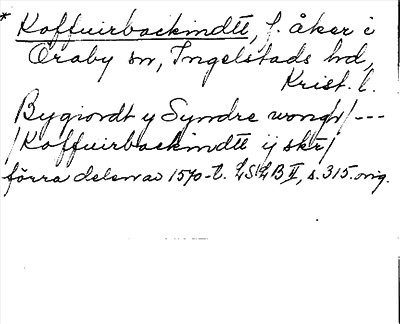 * Koffuirbackindtt, f. åker i
Öraby sn, Ingelstads hd,
Krist. l.
Bygiordt y Syndre wongh/---
/Koffuirbackindtt ij skr/
förra delen av 1570-t. LSLB II, s. 315. orig.